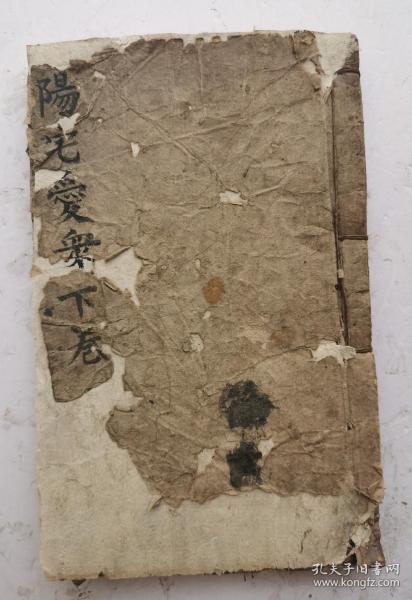 陽宅愛衆下卷
孔夫子旧书网
www.kongfz.com